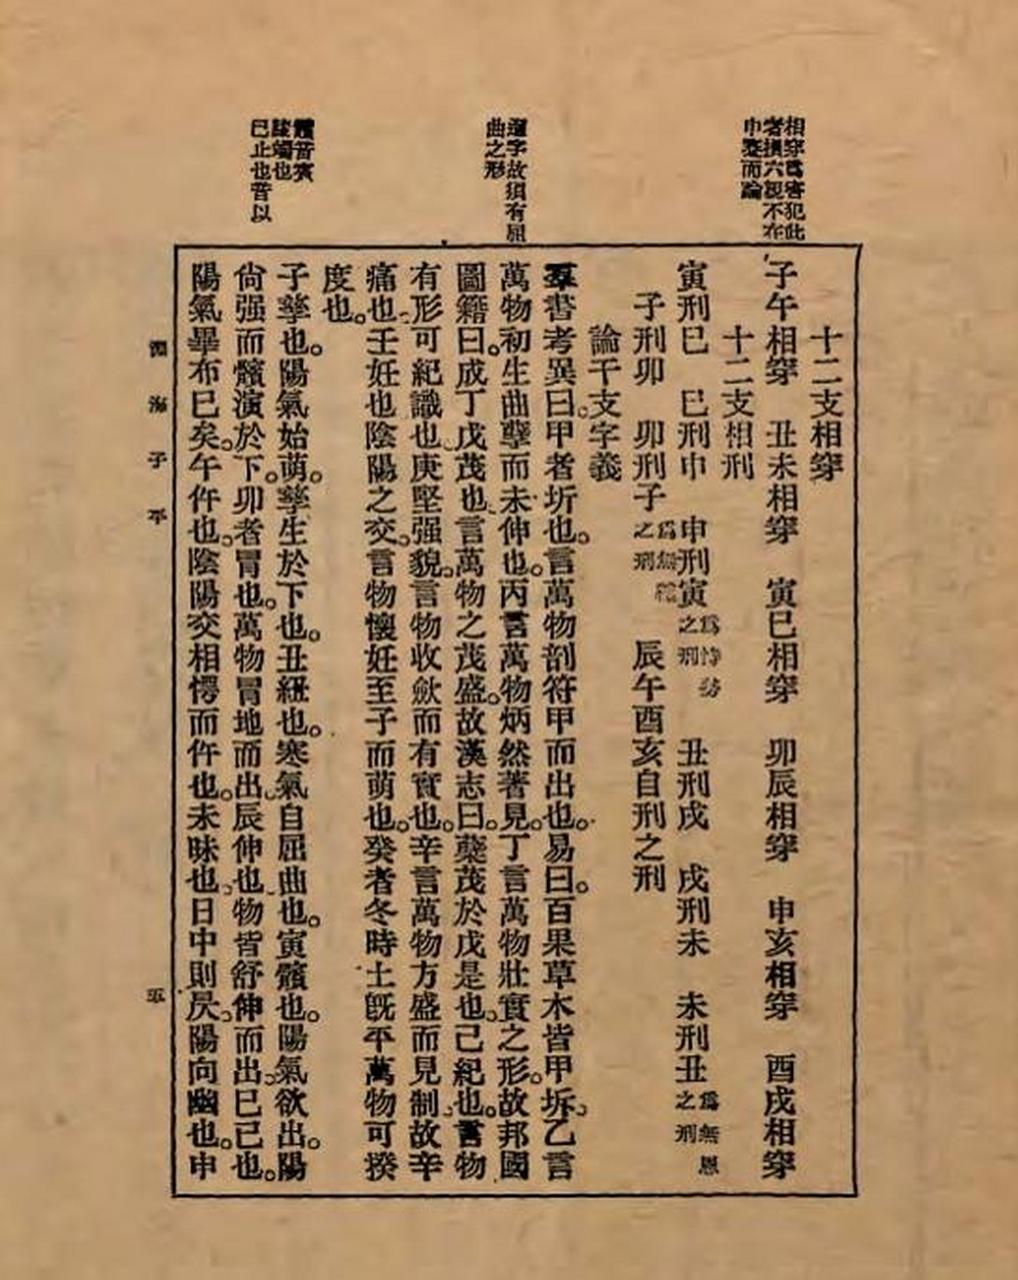 相穿爲害犯此
者損六親不在
中䇿而論
還字故須有屈
曲之形
髕音賓
膝端也
巳止也昔以
十二支相穿
子午相穿　丑未相穿　寅巳相穿　卯辰相穿　申亥相穿　酉戌相穿
十二支相刑
寅刑巳　巳刑申　申刑寅爲恃势之刑　丑刑戌　戌刑未　未刑丑爲無恩之刑
子刑卯　卯刑子爲無禮之刑　辰午酉亥自刑之刑
論干支字義
羣書考異曰。甲者坼也。言萬物剖符甲而出也。易曰。百果草木皆甲坼。乙言
萬物初生曲孽而未伸也。丙言萬物炳然著見。丁言萬物壯實之形。故邦國
圖籍曰。成丁戊茂也、言萬物之茂盛。故漢志曰。蘗茂於戊是也。己紀也。言物
有形可紀識也、庚堅强貌。言物收斂而有實也。辛言萬物方盛而見制、故辛
痛也、壬妊也陰陽之交。言物懷妊至子而萌也。癸者冬時土旣平萬物可揆
度也。
子孳也。陽氣始萌。孳生於下也。丑紐也。寒氣自屈曲也。寅髕也。陽氣欲出。陽
尙强而髕演於下。卯者冒也。萬物冒地而出、辰伸也、物皆舒伸而出、巳已也。
陽氣畢布已矣。午仵也。陰陽交相愕而仵也。未昧也、日中則昃。陽向幽也。申
淵海子平
五